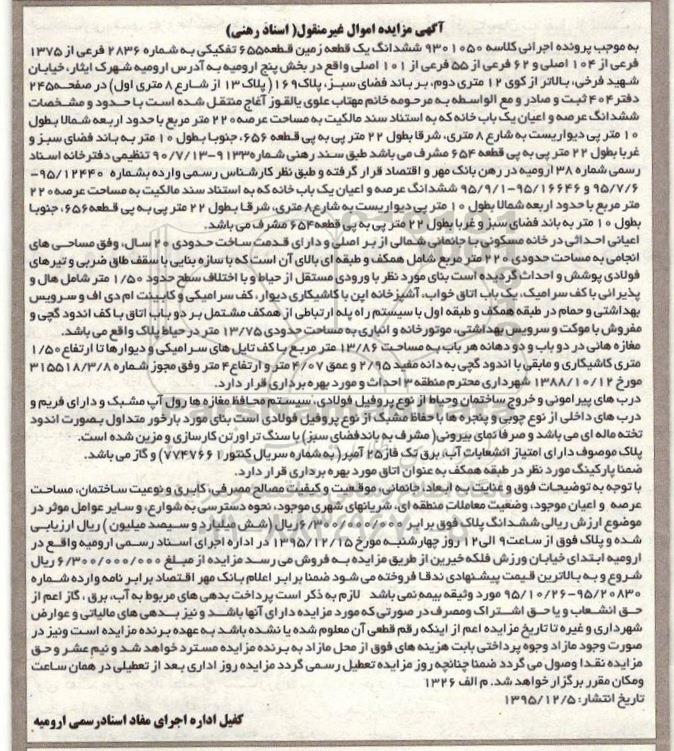 آگهی مزایده اموال غیرمنقول( اسناد رهنی)
به موجب پرونده اجرائی کلاسه ۹۳۰۱۰۵۰ ششدانگ یک قطعه زمین قطعه۶۵۵ تفکیکی به شماره ۲۸۳۶ فرعی از ۱۳۷۵
فرعی از ۱۰۴ اصلی و ۶۲ فرعی از ۵۵ فرعی از ۱۰۱ اصلی واقع در بخش پنج ارومیه به آدرس ارومیه شهرک ایثار، خیابان
شهید فرخی، بالاتر از کوی ۱۲ متری دوم، بر باند فضای سبز، پلاک۱۶۹( پلاک ۱۳ از شارع ۸ متری اول) در صفحه۲۴۵
دفتر۴۰۴ ثبت و صادر و مع الواسطه به مرحومه خانم مهتاب علوی یالقوز آغاج منتقل شده است با حدود و مشخصات
ششدانگ عرصه و اعیان یک باب خانه که به استناد سند مالکیت به مساحت عرصه۲۲۰ متر مربع با حدود اربعه شمالا بطول
۱۰ متر پی دیواریست به شارع ۸ متری، شرقا بطول ۲۲ متر پی به پی قطعه ۶۵۶، جنوبا بطول ۱۰ متر به باند فضای سبز و
غربا بطول ۲۲ متر پی به پی قطعه ۶۵۴ مشرف می باشد طبق سند رهنی شماره۹۱۳۳-۹۰/۷/۱۳ تنظیمی دفترخانه اسناد
رسمی شماره ۳۸ ارومیه در رهن بانک مهر و اقتصاد قرار گرفته و طبق نظر کارشناس رسمی وارده بشماره ۹۵/۱۲۴۴۰-
۹۵/۷/۶ و ۹۵/۱۶۶۴۶-۹۵/۹/۱ ششدانگ عرصه و اعیان یک باب خانه که به استناد سند مالکیت به مساحت عرصه۲۲۰
متر مربع با حدود اربعه شمالا بطول ۱۰ متر پی دیواریست به شارع۸ متری، شرقا بطول ۲۲ متر پی به پی قطعه۶۵۶، جنوبا
بطول ۱۰ متر به باند فضای سبز و غربا بطول ۲۲ متر پی به پی قطعه۶۵۴ مشرف می باشد.
اعیانی احداثی در خانه مسکونی با جانمائی شمالی از بر اصلی و دارای قدمت ساخت حدودی ۲۰ سال، وفق مساحی های
انجامی به مساحت حدودی ۲۲۰ متر مربع شامل همکف و طبقه ای بالای آن است که با سازه بنایی با سقف طاق ضربی و تیرهای
فولادی پوشش و احداث گردیده است بنای مورد نظر با ورودی مستقل از حیاط و با اختلاف سطح حدود ۱/۵۰ متر شامل هال و
پذیرائی با کف سرامیک، یک باب اتاق خواب، آشپزخانه اپن با کاشیکاری دیوار، کف سرامیکی و کابینت ام دی اف و سرویس
بهداشتی و حمام در طبقه همکف و طبقه اول با سیستم راه پله ارتباطی از همکف مشتمل بر دو باب اتاق با کف اندود گچی و
مفروش با موکت و سرویس بهداشتی، موتورخانه و انباری به مساحت حدودی ۱۳/۷۵ متر در حیاط پلاک واقع می باشد.
مغازه هائی در دو باب و دو دهانه هر باب به مساحت ۱۳/۸۶ متر مربع با کف تایل های سرامیکی و دیوارها تا ارتفاع ۱/۵۰
متری کاشیکاری و مابقی با اندود گچی به دانه مفید ۲/۹۵ و عمق ۴/۰۷ متر و ارتفاع۴ متر وفق مجوز شماره ۳۱۵۵۱۸/۳/۸
مورخ ۱۳۸۸/۱۰/۱۲ شهرداری محترم منطقه ۳ احداث و مورد بهره برداری قرار دارد.
درب های پیرامونی و خروج ساختمان وحیاط از نوع پروفیل فولادی، سیستم محافظ مغازه ها رول آپ مشبک و دارای فریم و
درب های داخلی از نوع چوبی و پنجره ها با حفاظ مشبک از نوع پروفیل فولادی است بنای مورد بازخور متداول بصورت اندود
تخته ماله ای می باشد و صرفا نمای بیرونی( مشرف به باندفضای سبز) با سنگ تراورتن کارسازی و مزین شده است.
پلاک موصوف دارای امتیاز انشعابات آب، برق تک فاز ۲۵ آمپر( به شماره سریال کنتور۷۷۴۷۶۶۱) و گاز می باشد.
ضمنا پارکینگ مورد نظر در طبقه همکف به عنوان اتاق مورد بهره برداری قرار دارد.
با توجه به توضیحات فوق و عنایت به ابعاد، جانمائی، موقعیت و کیفیت مصالح مصرفی، کابری و نوعیت ساختمان، مساحت
عرصه و اعیان موجود، وضعیت معاملات منطقه ای، شریانهای شهری موجود، نحوه دسترسی به شوارع، و سایر عوامل موثر در
موضوع ارزش ریالی ششدانگ پلاک فوق برابر ۶/۳۰۰/۰۰۰/۰۰۰ریال (شش میلیارد و سیصد میلیون ) ریال ارزیابی
شده و پلاک فوق از ساعت۹ الی۱۲ روز چهارشنبه مورخ ۱۳۹۵/۱۲/۱۵ در اداره اجرای اسناد رسمی ارومیه واقع در
ارومیه ابتدای خیابان ورزش فلکه خیرین از طریق مزایده به فروش می رسد مزایده از مبلغ ۶/۳۰۰/۰۰۰/۰۰۰ ریال
شروع و به بالاترین قیمت پیشنهادی نقدا فروخته می شود ضمنا برابر اعلام بانک مهر اقتصاد برابر نامه وارده شماره
۹۵/۲۰۸۳۰-۹۵/۱۰/۲۶ مورد وثیقه بیمه نمی باشد لازم به ذکر است پرداخت بدهی های مربوط به آب، برق ، گاز اعم از
حق انشعاب و یا حق اشتراک ومصرف در صورتی که مورد مزایده دارای آنها باشد و نیز بدهی های مالیاتی و عوارض
شهرداری و غیره تا تاریخ مزایده اعم از اینکه رقم قطعی آن معلوم شده یا نشده باشد به عهده برنده مزایده است ونیز در
صورت وجود مازاد وجوه پرداختی بابت هزینه های فوق از محل مازاد به برنده مزایده مسترد خواهد شد و نیم عشر و حق
مزایده نقدا وصول می گردد ضمنا چنانچه روز مزایده تعطیل رسمی گردد مزایده روز اداری بعد از تعطیلی در همان ساعت
ومکان مقرر برگزار خواهد شد. م الف ۱۳۲۶
تاریخ انتشار: ۱۳۹۵/۱۲/۵
کفیل اداره اجرای مفاد اسنادرسمی ارومیه